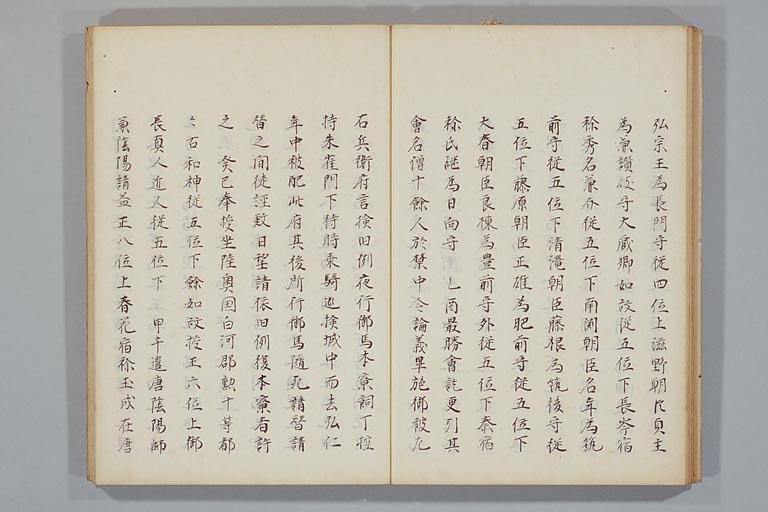 弘宗王為長門守従四位上滋野朝臣貞主
為兼讃岐守大蔵卿如故従五位下長岑宿
祢秀名兼介従五位下南淵朝臣名年為筑
前守従五位下清滝朝臣藤根為筑後守従
五位下藤原朝臣正雄為肥前守従五位下
大春朝臣良棟為豊前守外従五位下秦宿
祢氏継為日向守 乙酉最勝會訖更列其
會名僧十餘人於禁中令論義畢施御被九
右兵衛府言検旧例夜行御馬本寮飼丁控
持朱雀門下待時乗騎巡検城中而去弘仁
年中被配此府其後所行御馬随死請替請
替之间徒淫数日望請依旧例復本寮者許
之 癸已奉授坐陸奥国白河郡勲十等都
々古和神従五位下餘如故授正六位上御
長真人近人従五位下 甲午遣唐陰陽師
兼陰陽請益正八位上春苑宿祢玉成在唐